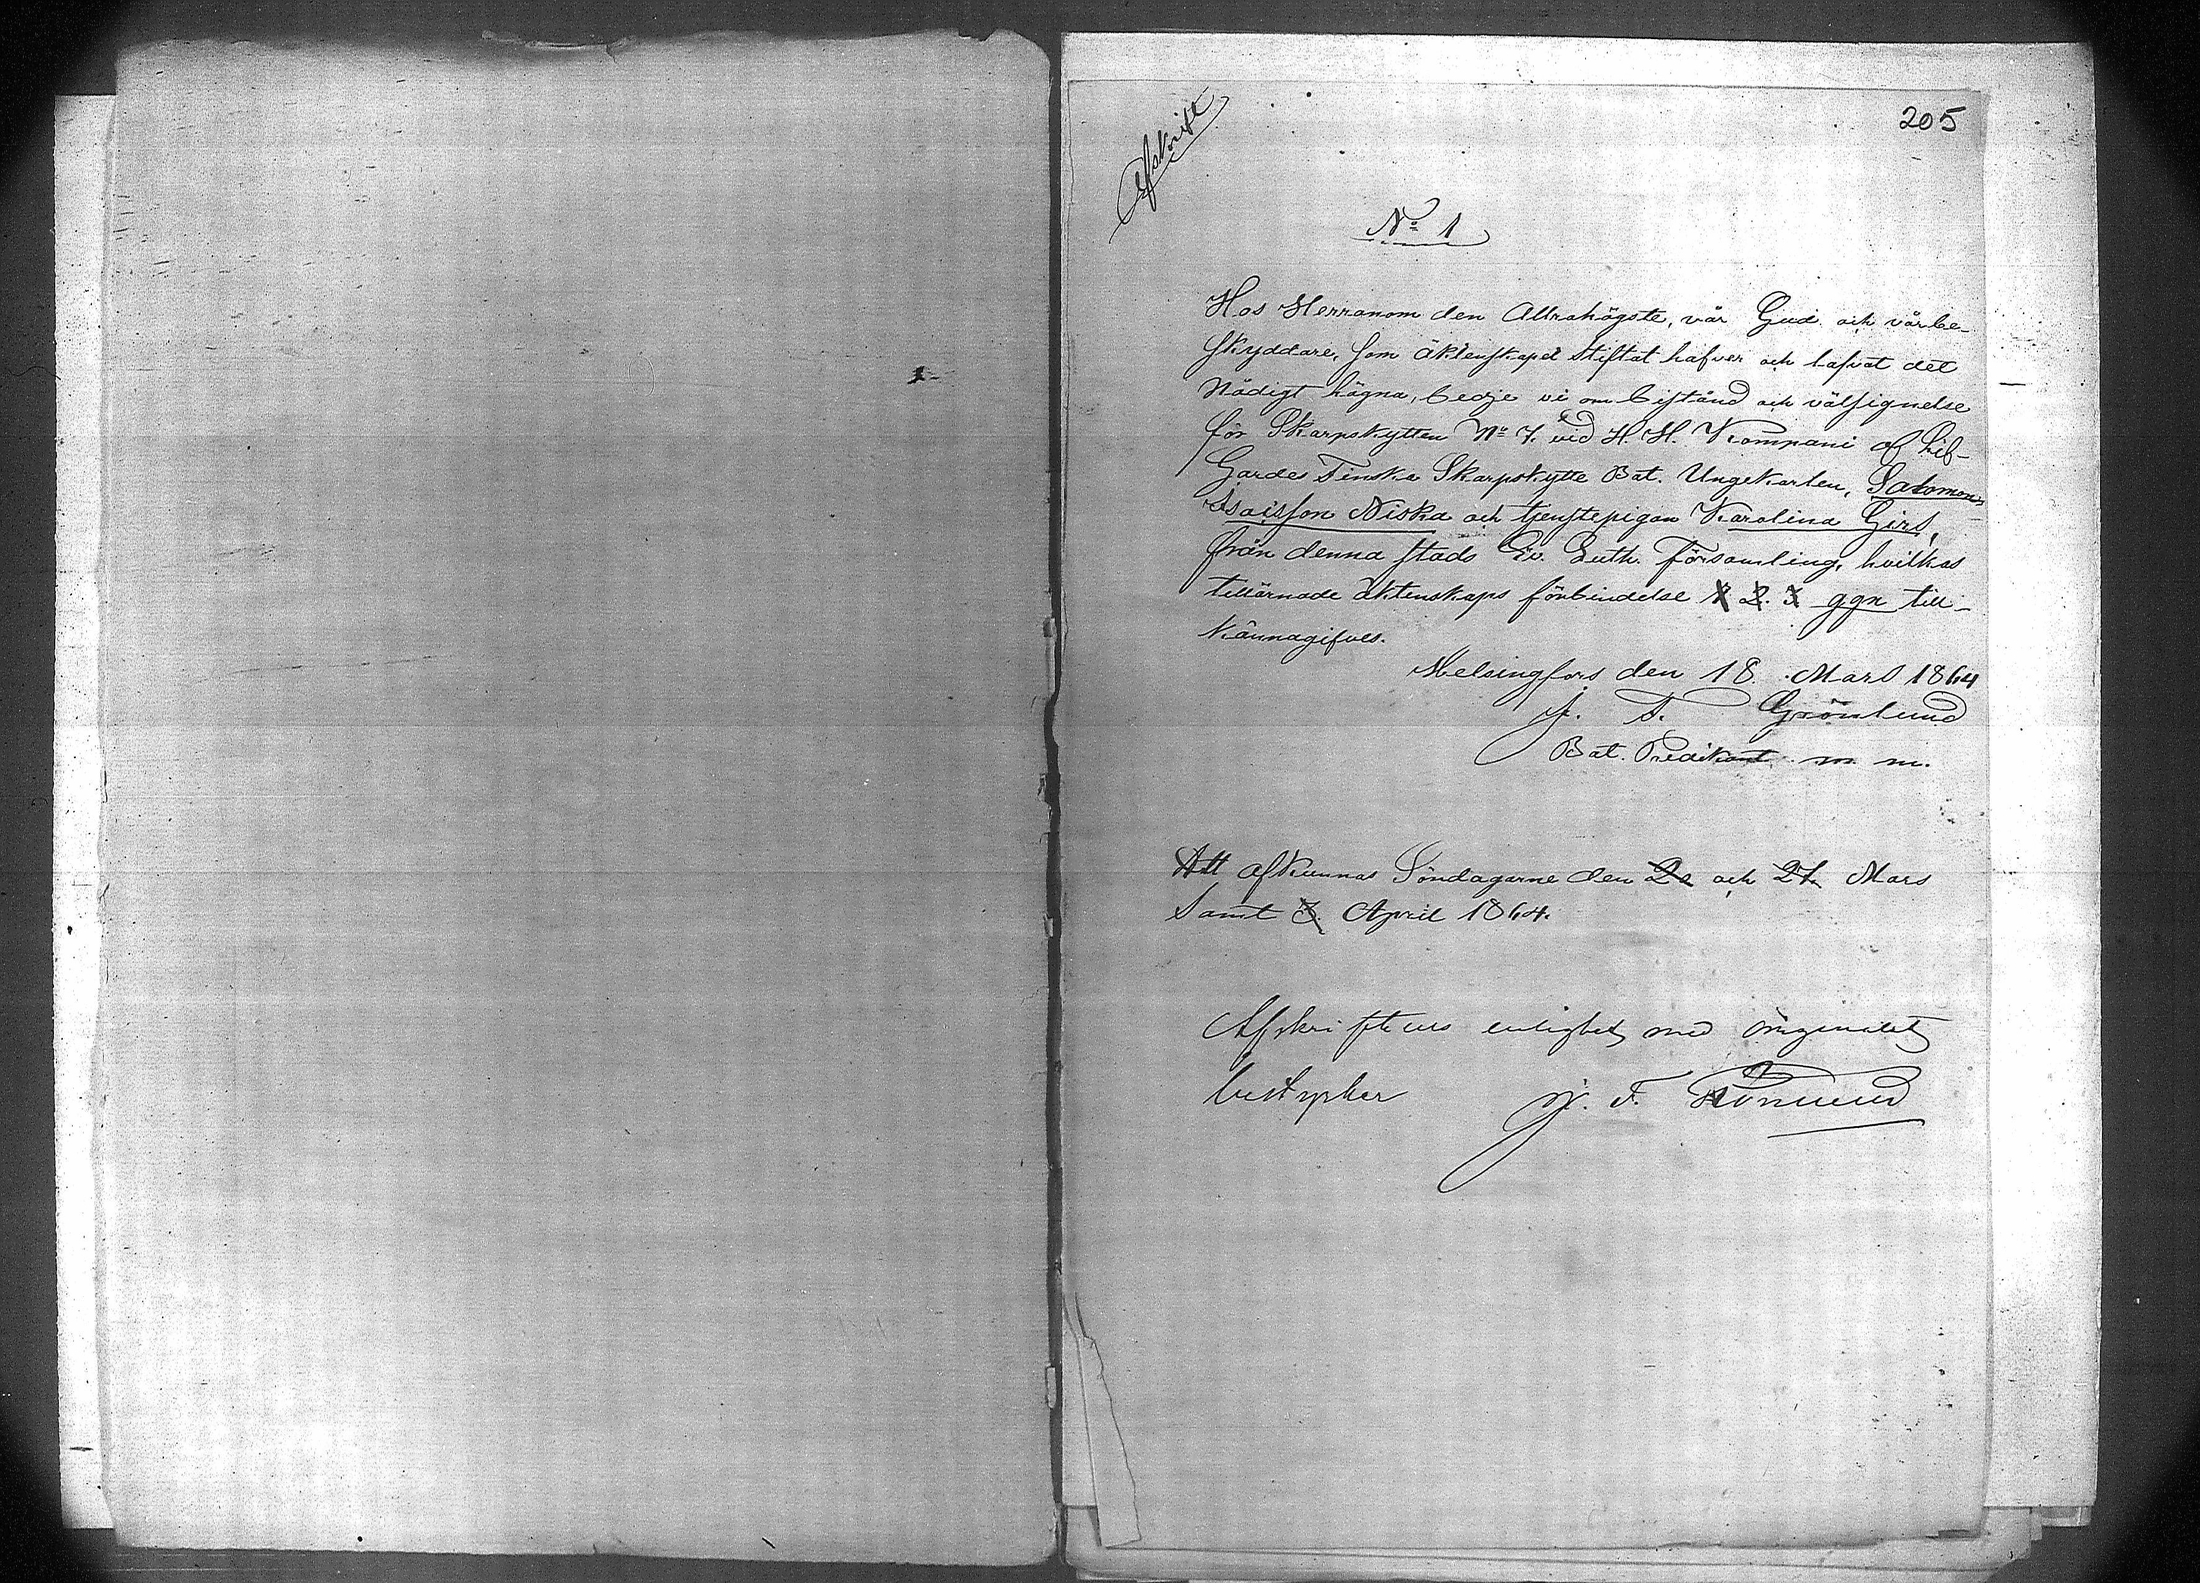 205
Afskrift
No 1
Hos Herranom den Allrahögste, vår Gud och vår be-
skyddare, som äktenskapet stiftat hafver och lofvat det
Nådigt hägna, bedje vi om bistånd och välsignelse
för Skarpskytten No 7. vid H. H. Kompani af Lif-
Gardes Finska Skarpskytte Bat. Ungekarlen, Salomon
Isaisson Niska och tjenstepigan Karolina Girs,
från denna stads Ev. Luth. Församling, hvilkas
tillärnade äktenskaps förbindelse 1 2. 3 ggn till-
kännagifves.
Helsingfors den 18. Mars 1864
J. F. Grönlund
Bat. Predikant m. m.
Att afkunnas Söndagarne den 20 och 27. Mars
Samt 3. April 1864.
Afskriftens enlighet med originalet
bestyrker J. F. Grönlund